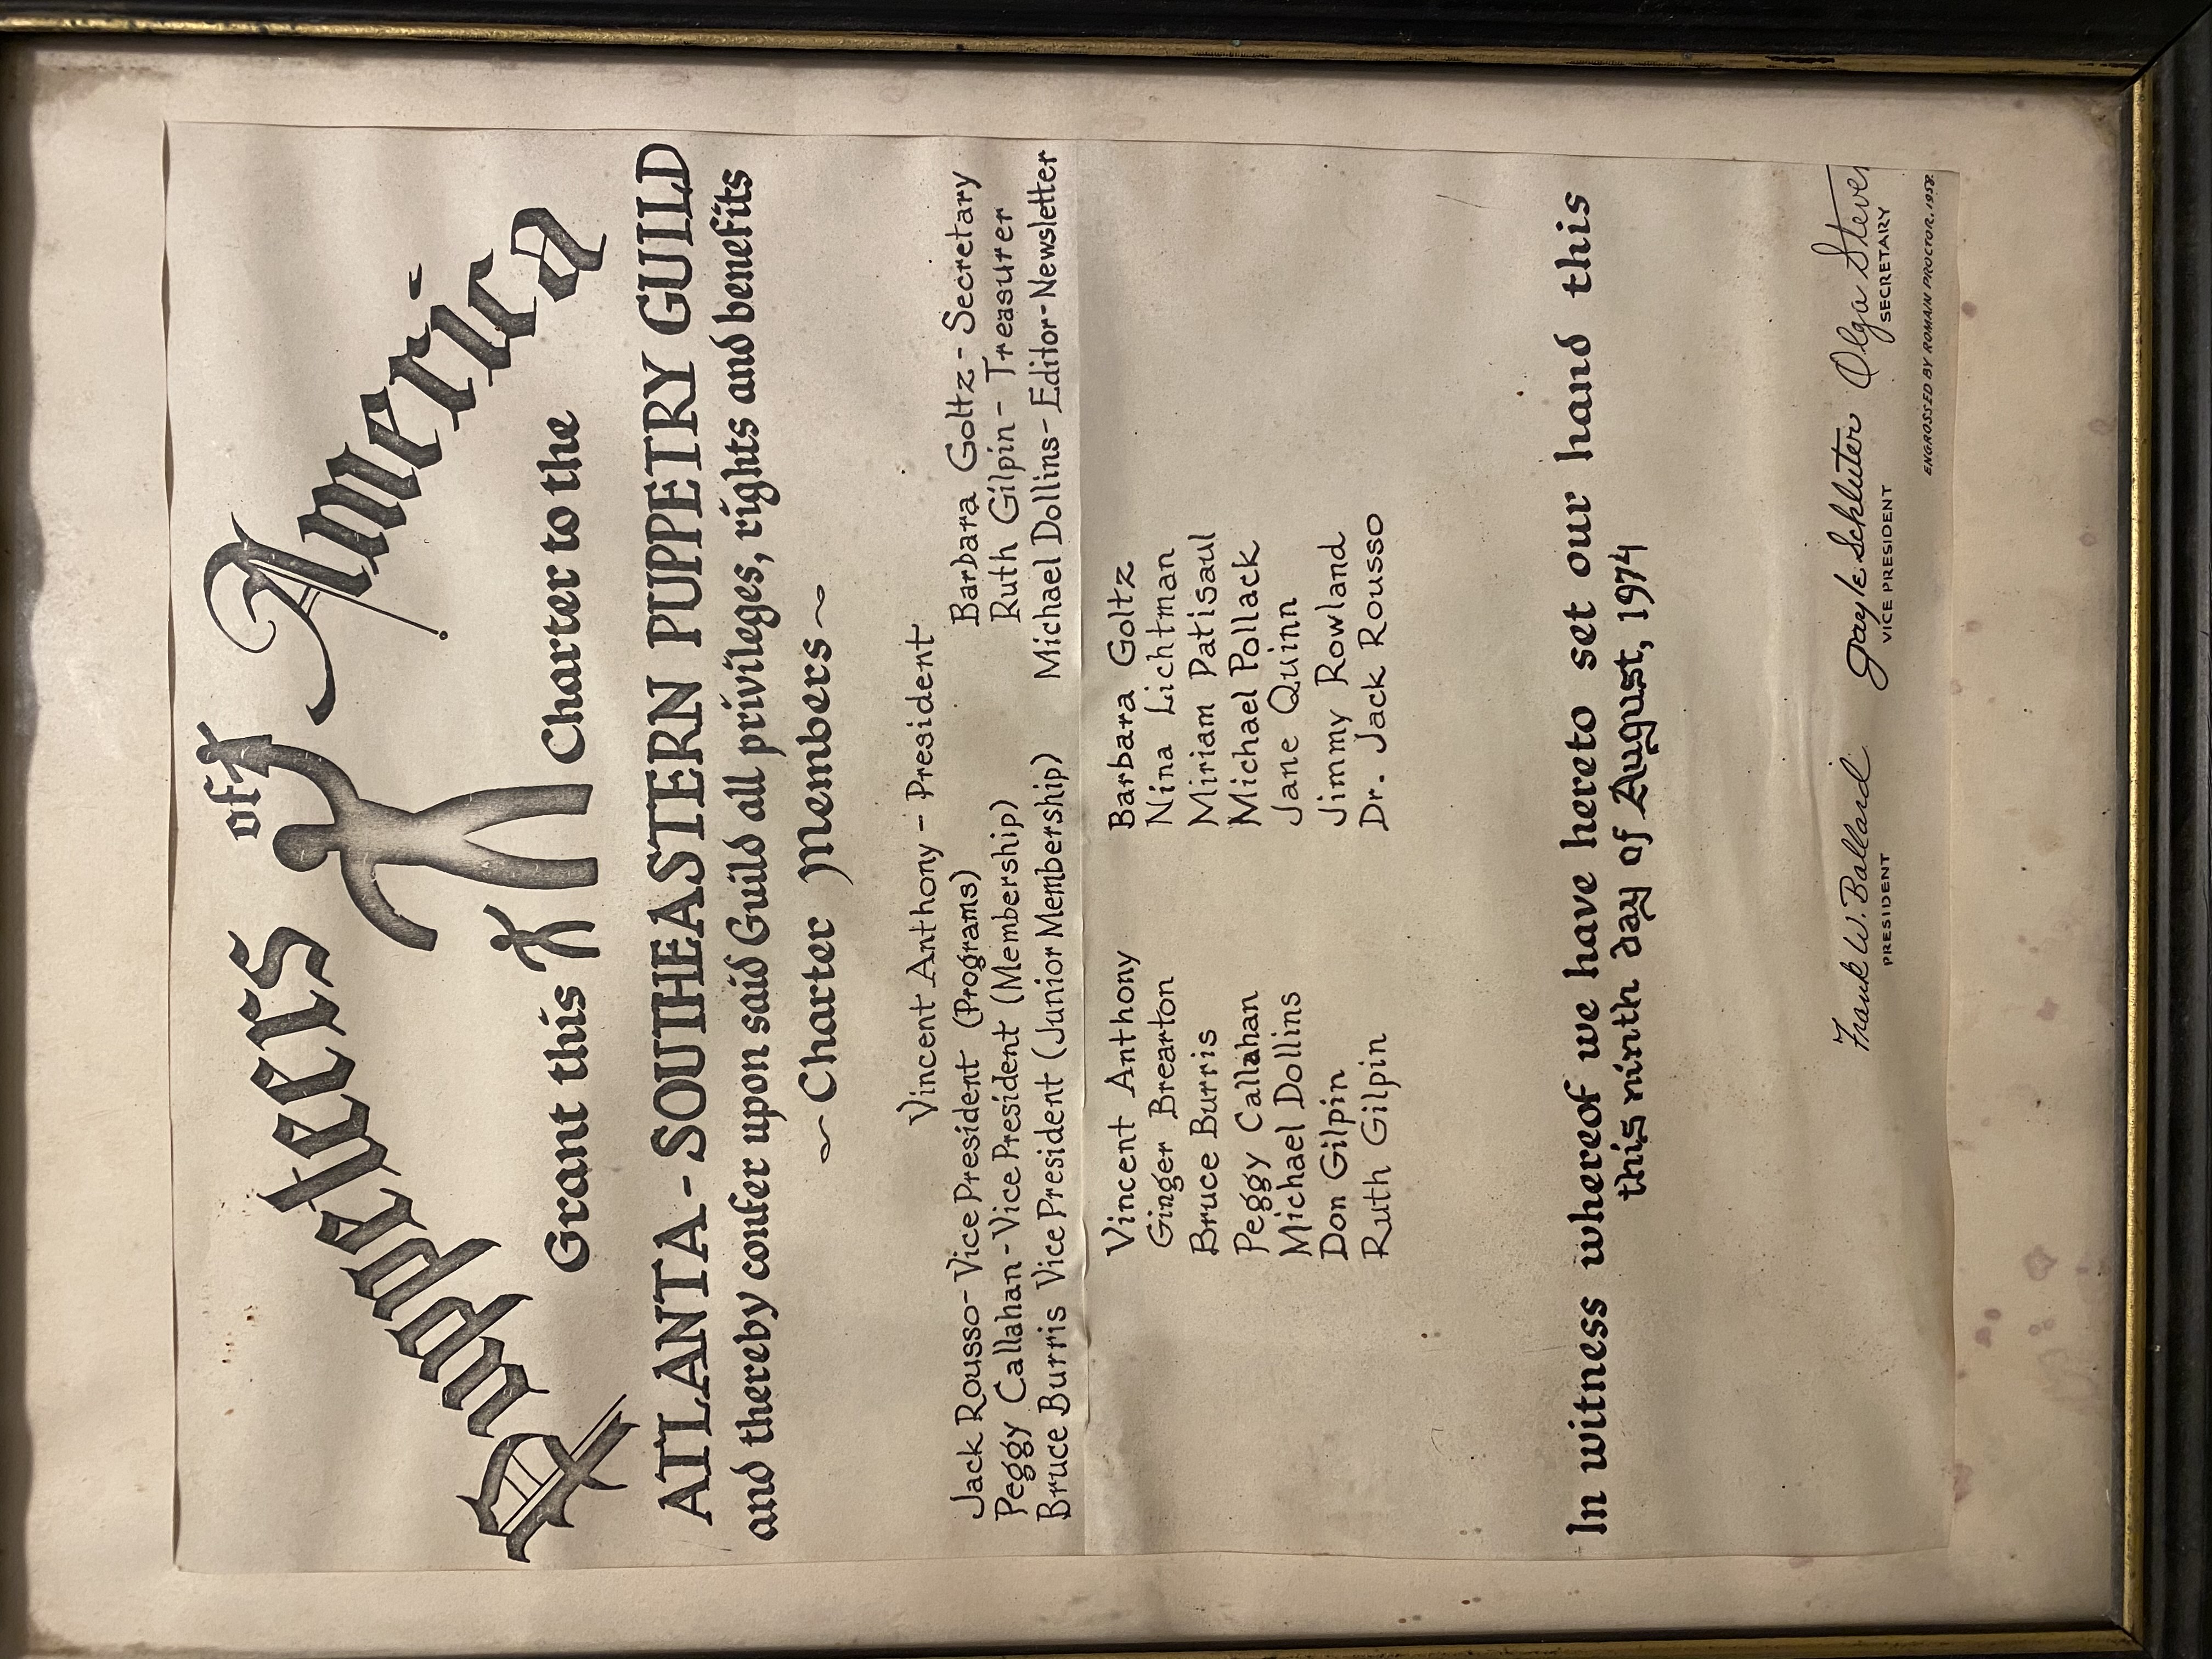 Puppeteers of America
Grant this Charter to the
ATLANTA - SOUTHEASTERN PUPPETRY GUILD
and thereby confer upon said Guild all privileges, rights and benefits
~ Charter Members ~
Vincent Anthony - President
Jack Rousso - Vice President (Programs)
Barbara Goltz - Secretary
Peggy Callahan - Vice President (Membership)
Ruth Gilpin - Treasurer
Bruce Burris Vice President (Junior Membership)
Michael Dollins - Editor - Newsletter
Vincent Anthony
Ginger Brearton
Bruce Burris
Peggy Callahan
Michael Dollins
Don Gilpin
Ruth Gilpin
Barbara Goltz
Nina Lichtman
Miriam Patisaul
Michael Pollack
Jane Quinn
Jimmy Rowland
Dr. Jack Rousso
In witness whereof we have hereto set our hand this
this ninth day of August, 1974
Frank W. Ballard
PRESIDENT
Gayle Schluter
VICE PRESIDENT
Olga Steve
SECRETARY
ENGROSSED BY ROMAIN PROCTOR, 1958.